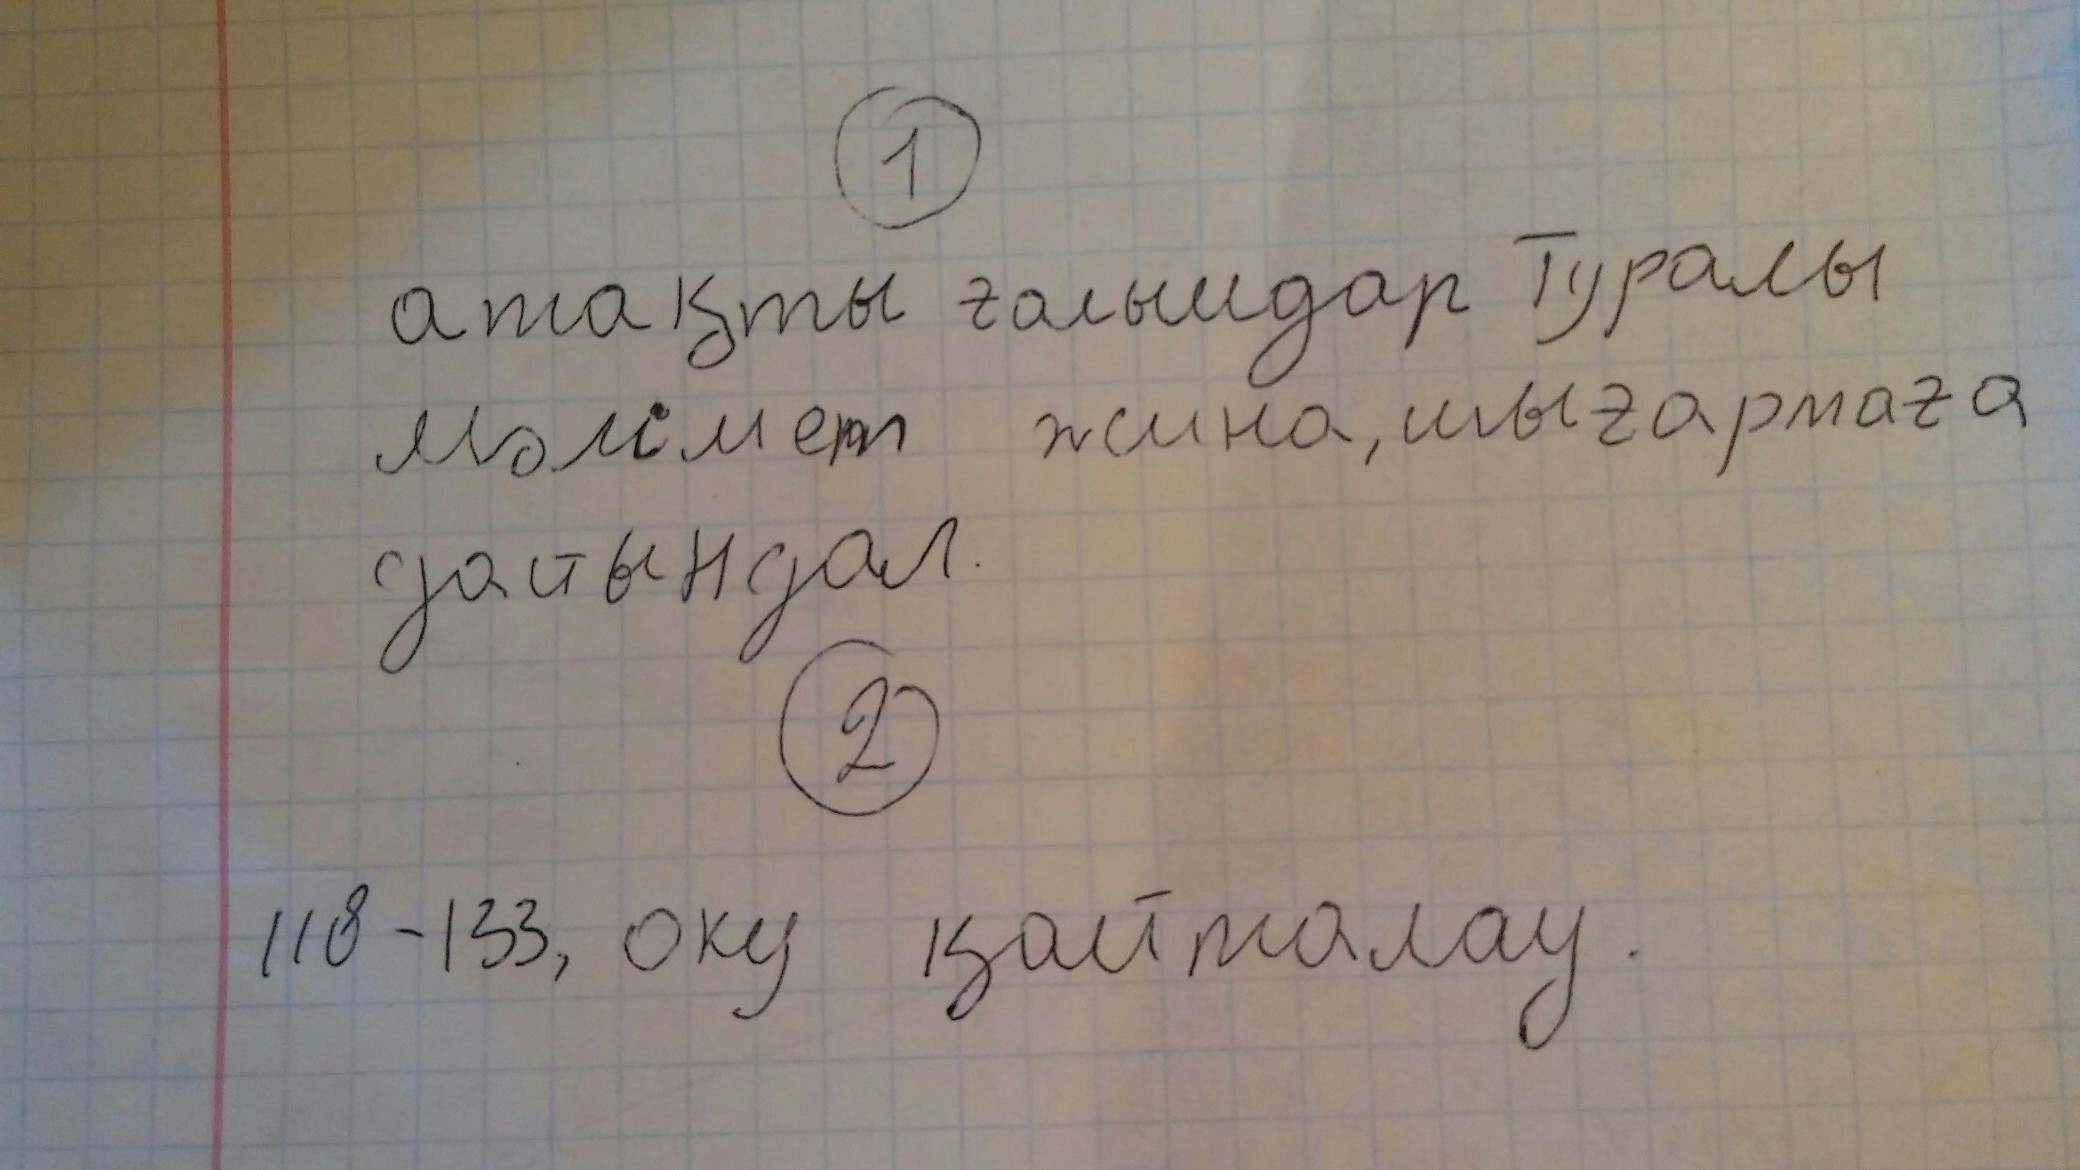 1
атақты ғалымдар Туралы
мәлімет жина, шығармаға
дайындал.
2
118-133, оку қайталау.